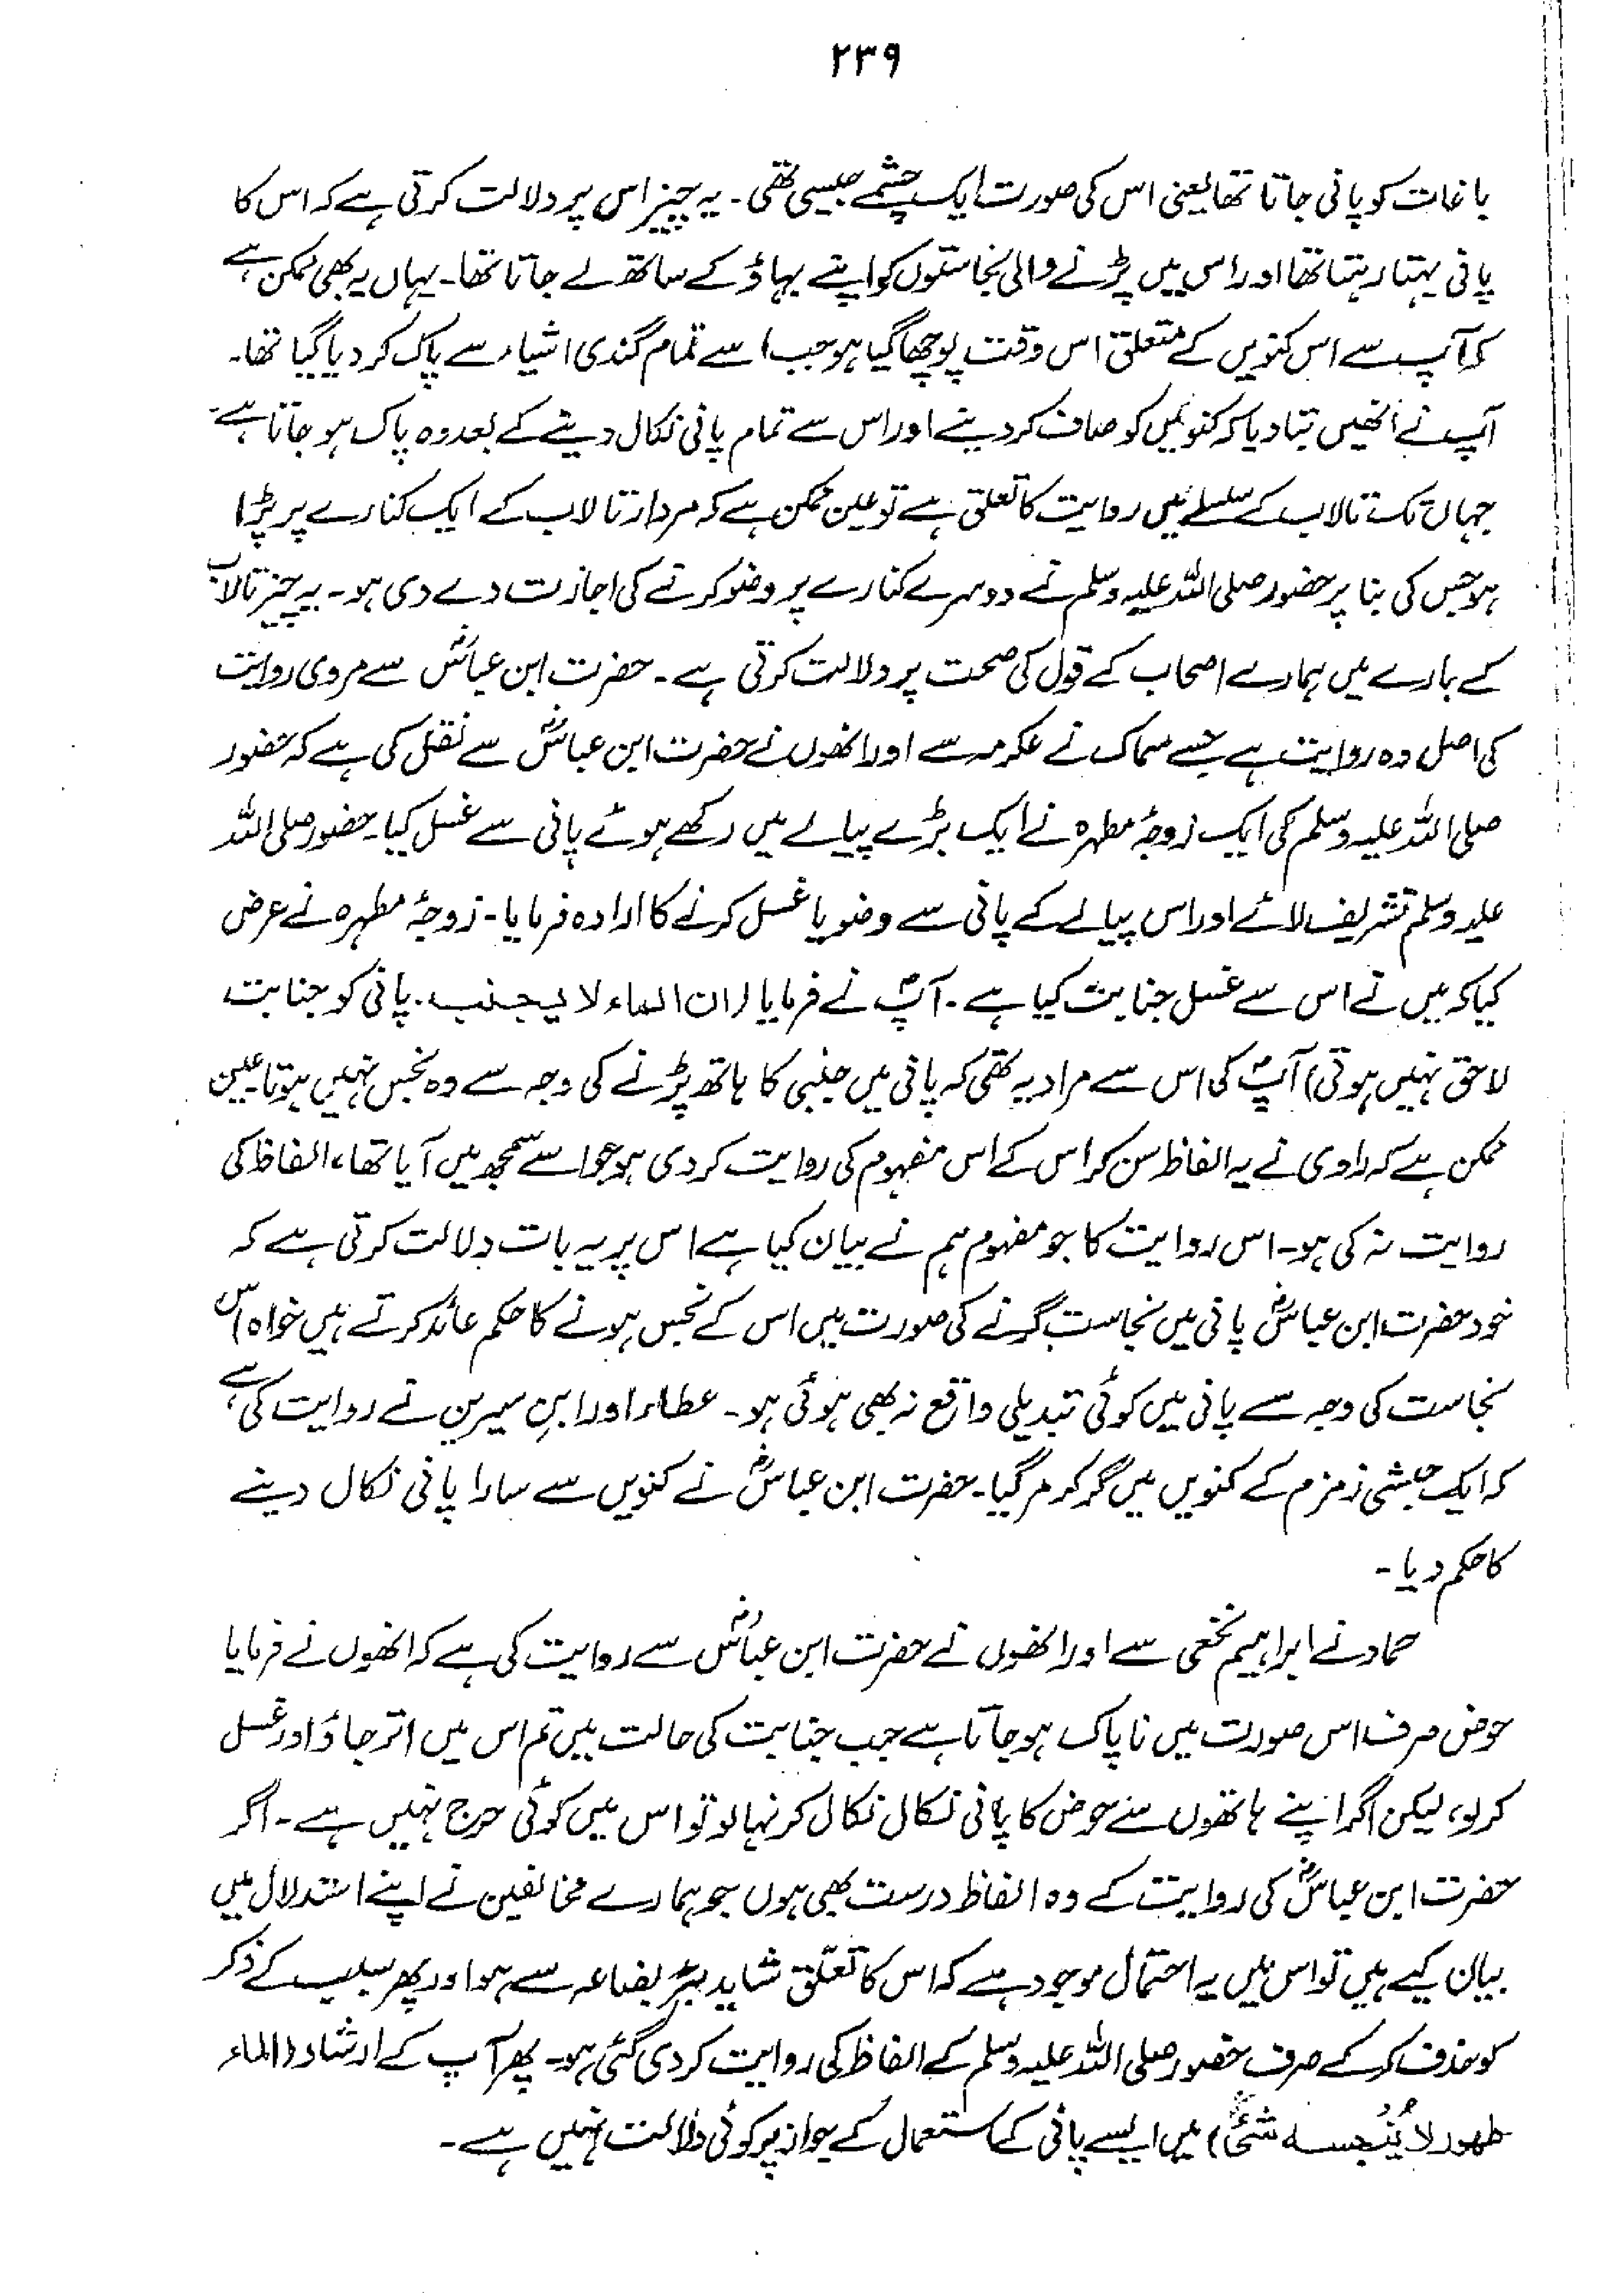 ۲۳۹
باغات کو پانی جاتا تھا یعنی اس کی صورت ایک چشمے جیسی تھی۔ یہ چیز اس پر دلالت کرتی ہے کہ اس کا
پانی بہتا رہتا تھا اور اس میں پڑنے والی نجاستوں کو اپنے بہاؤ کے ساتھ لے جاتا تھا۔ یہاں یہ بھی ممکن ہے
کہ آپ سے اس کنویں کے متعلق اس وقت پوچھا گیا ہو جب اسے تمام گندی اشیاء سے پاک کر دیا گیا تھا۔
آپ نے انھیں بتا دیا کہ کنوئیں کو صاف کر دینے اور اس سے تمام پانی نکال دینے کے بعد وہ پاک ہو جاتا ہے۔
جہاں تک تالاب کے سلسلے میں روایت کا تعلق ہے تو عین ممکن ہے کہ مردار تالاب کے ایک کنارے پر پڑا
ہو جس کی بنا پر حضور صلی اللہ علیہ وسلم نے دوسرے کنارے پر وضو کرنے کی اجازت دے دی ہو۔ یہ چیز تالاب
کے بارے میں ہمارے اصحاب کے قول کی صحت پر دلالت کرتی ہے۔ حضرت ابن عباسؓ سے مروی روایت
کی اصل وہ روایت ہے جسے سماک نے عکرمہ سے اور انھوں نے حضرت ابن عباسؓ سے نقل کی ہے کہ حضور
صلی اللہ علیہ وسلم کی ایک زوجۂ مطہرہ نے ایک بڑے پیالے میں رکھے ہوئے پانی سے غسل کیا۔ حضور صلی اللہ
علیہ وسلم تشریف لائے اور اس پیالے کے پانی سے وضو یا غسل کرنے کا ارادہ فرمایا۔ زوجۂ مطہرہ نے عرض
کیا کہ میں نے اس سے غسل جنابت کیا ہے۔ آپؐ نے فرمایا (ان الماء لا یجنب۔ پانی کو جنابت
لاحق نہیں ہوتی) آپؐ کی اس سے مراد یہ تھی کہ پانی میں جنبی کا ہاتھ پڑنے کی وجہ سے وہ نجس نہیں ہوتا۔ عین
ممکن ہے کہ راوی نے یہ الفاظ سن کر اس کے اس مفہوم کی روایت کر دی ہو جو اسے سمجھ میں آیا تھا، الفاظ کی
روایت نہ کی ہو۔ اس روایت کا جو مفہوم ہم نے بیان کیا ہے اس پر یہ بات دلالت کرتی ہے کہ
خود حضرت ابن عباسؓ پانی میں نجاست گرنے کی صورت میں اس کے نجس ہونے کا حکم عائد کرتے ہیں خواہ اس
نجاست کی وجہ سے پانی میں کوئی تبدیلی واقع نہ بھی ہوئی ہو۔ عطاء اور ابنِ سیرین نے روایت کی ہے
کہ ایک حبشی زمزم کے کنویں میں گر کر مر گیا۔ حضرت ابن عباسؓ نے کنویں سے سارا پانی نکال دینے
کا حکم دیا۔
حماد نے ابراہیم نخعی سے اور انھوں نے حضرت ابن عباسؓ سے روایت کی ہے کہ انھوں نے فرمایا
حوض صرف اس صورت میں ناپاک ہو جاتا ہے جب جنابت کی حالت میں تم اس میں اتر جاؤ اور غسل
کر لو، لیکن اگر اپنے ہاتھوں سے حوض کا پانی نکال نکال کر نہا لو تو اس میں کوئی حرج نہیں ہے۔ اگر
حضرت ابن عباسؓ کی روایت کے وہ الفاظ درست بھی ہوں جو ہمارے مخالفین نے اپنے استدلال میں
بیان کیے ہیں تو اس میں یہ احتمال موجود ہے کہ اس کا تعلّق شاید بئر بضاعہ سے ہو اور پھر سبب کے ذکر
کو حذف کر کے صرف حضور صلی اللہ علیہ وسلم کے الفاظ کی روایت کر دی گئی ہو۔ پھر آپ کے ارشاد (الماء
طھور لا یُنَجسہ شئٌ) میں ایسے پانی کے استعمال کے جواز پر کوئی دلالت نہیں ہے۔